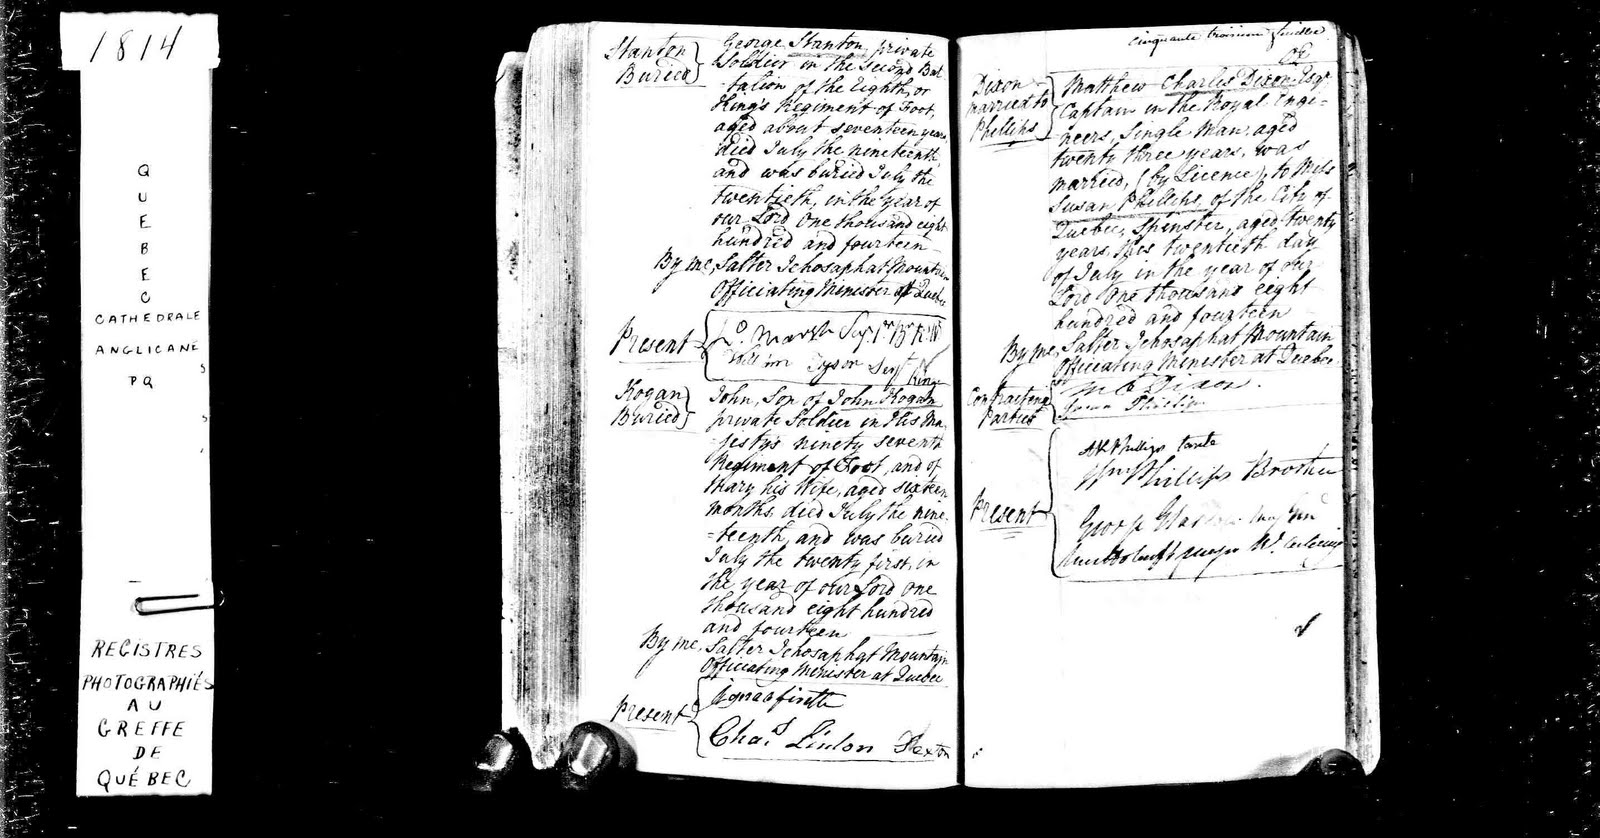 1814
QUEBEC
CATHEDRALE
ANGLICANE
PQ
REGISTRES
PHOTOGRAPHIÉS
AU
GREFFE
DE
QUÉBEC
Stanton
Buried
George Stanton, private
Soldier in the Second Bat
talion of the Eighth, or
King's Regiment of Foot,
aged about seventeen years
died July the nineteenth,
and was buried July the
twentieth, in the year of
our Lord One thousand eight
hundred and fourteen
By me, Salter Jehosaphat Mountain
Officiating Minister at Quebec
Present
Marsh Serjt
Tyson Serjt Kings
Kogan
Buried
John, Son of John Kogan
private Soldier in His Ma
-jesty's ninety seventh
Regiment of Foot, and of
Mary his Wife, aged sixteen
months, died July the nine
-teenth, and was buried
July the twenty first, in
the year of our Lord One
thousand eight hundred
and fourteen
By me, Salter Jehosaphat Mountain
Officiating Minister at Quebec
Present
Chas Linton Sexton
cinquante troisieme feuillet
Dixon
married to
Phillips
Matthew Charles Dixon Esqr
Captain in the Royal Engi=
neers, Single Man, aged
twenty three years, was
married, (by Licence), to Miss
Susan Phillips, of the City of
Quebec, Spinster, aged twenty
years, this twentieth day
of July in the year of our
Lord One thousand eight
hundred and fourteen
By me, Salter Jehosaphat Mountain
Officiating Minister at Quebec
Contracting
Parties
M C Dixon.
Susan Phillips
Present
Phillips tante
Wm Phillips Brother
George